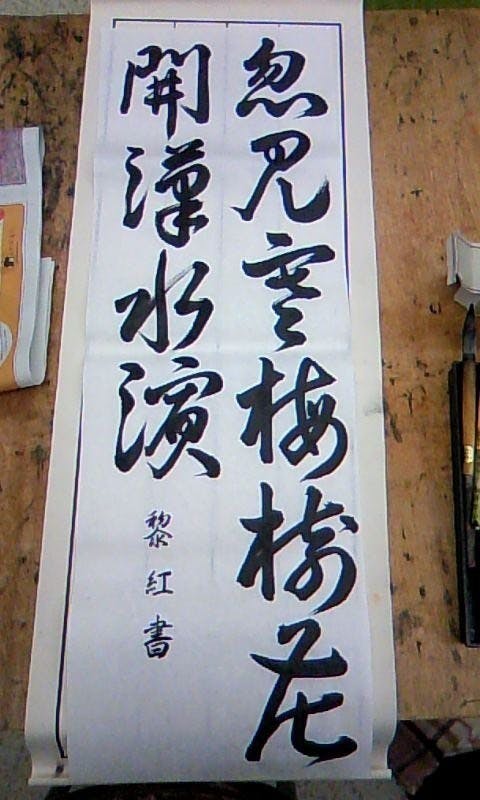 忽見寒梅樹花
開漢水濱
黎紅書